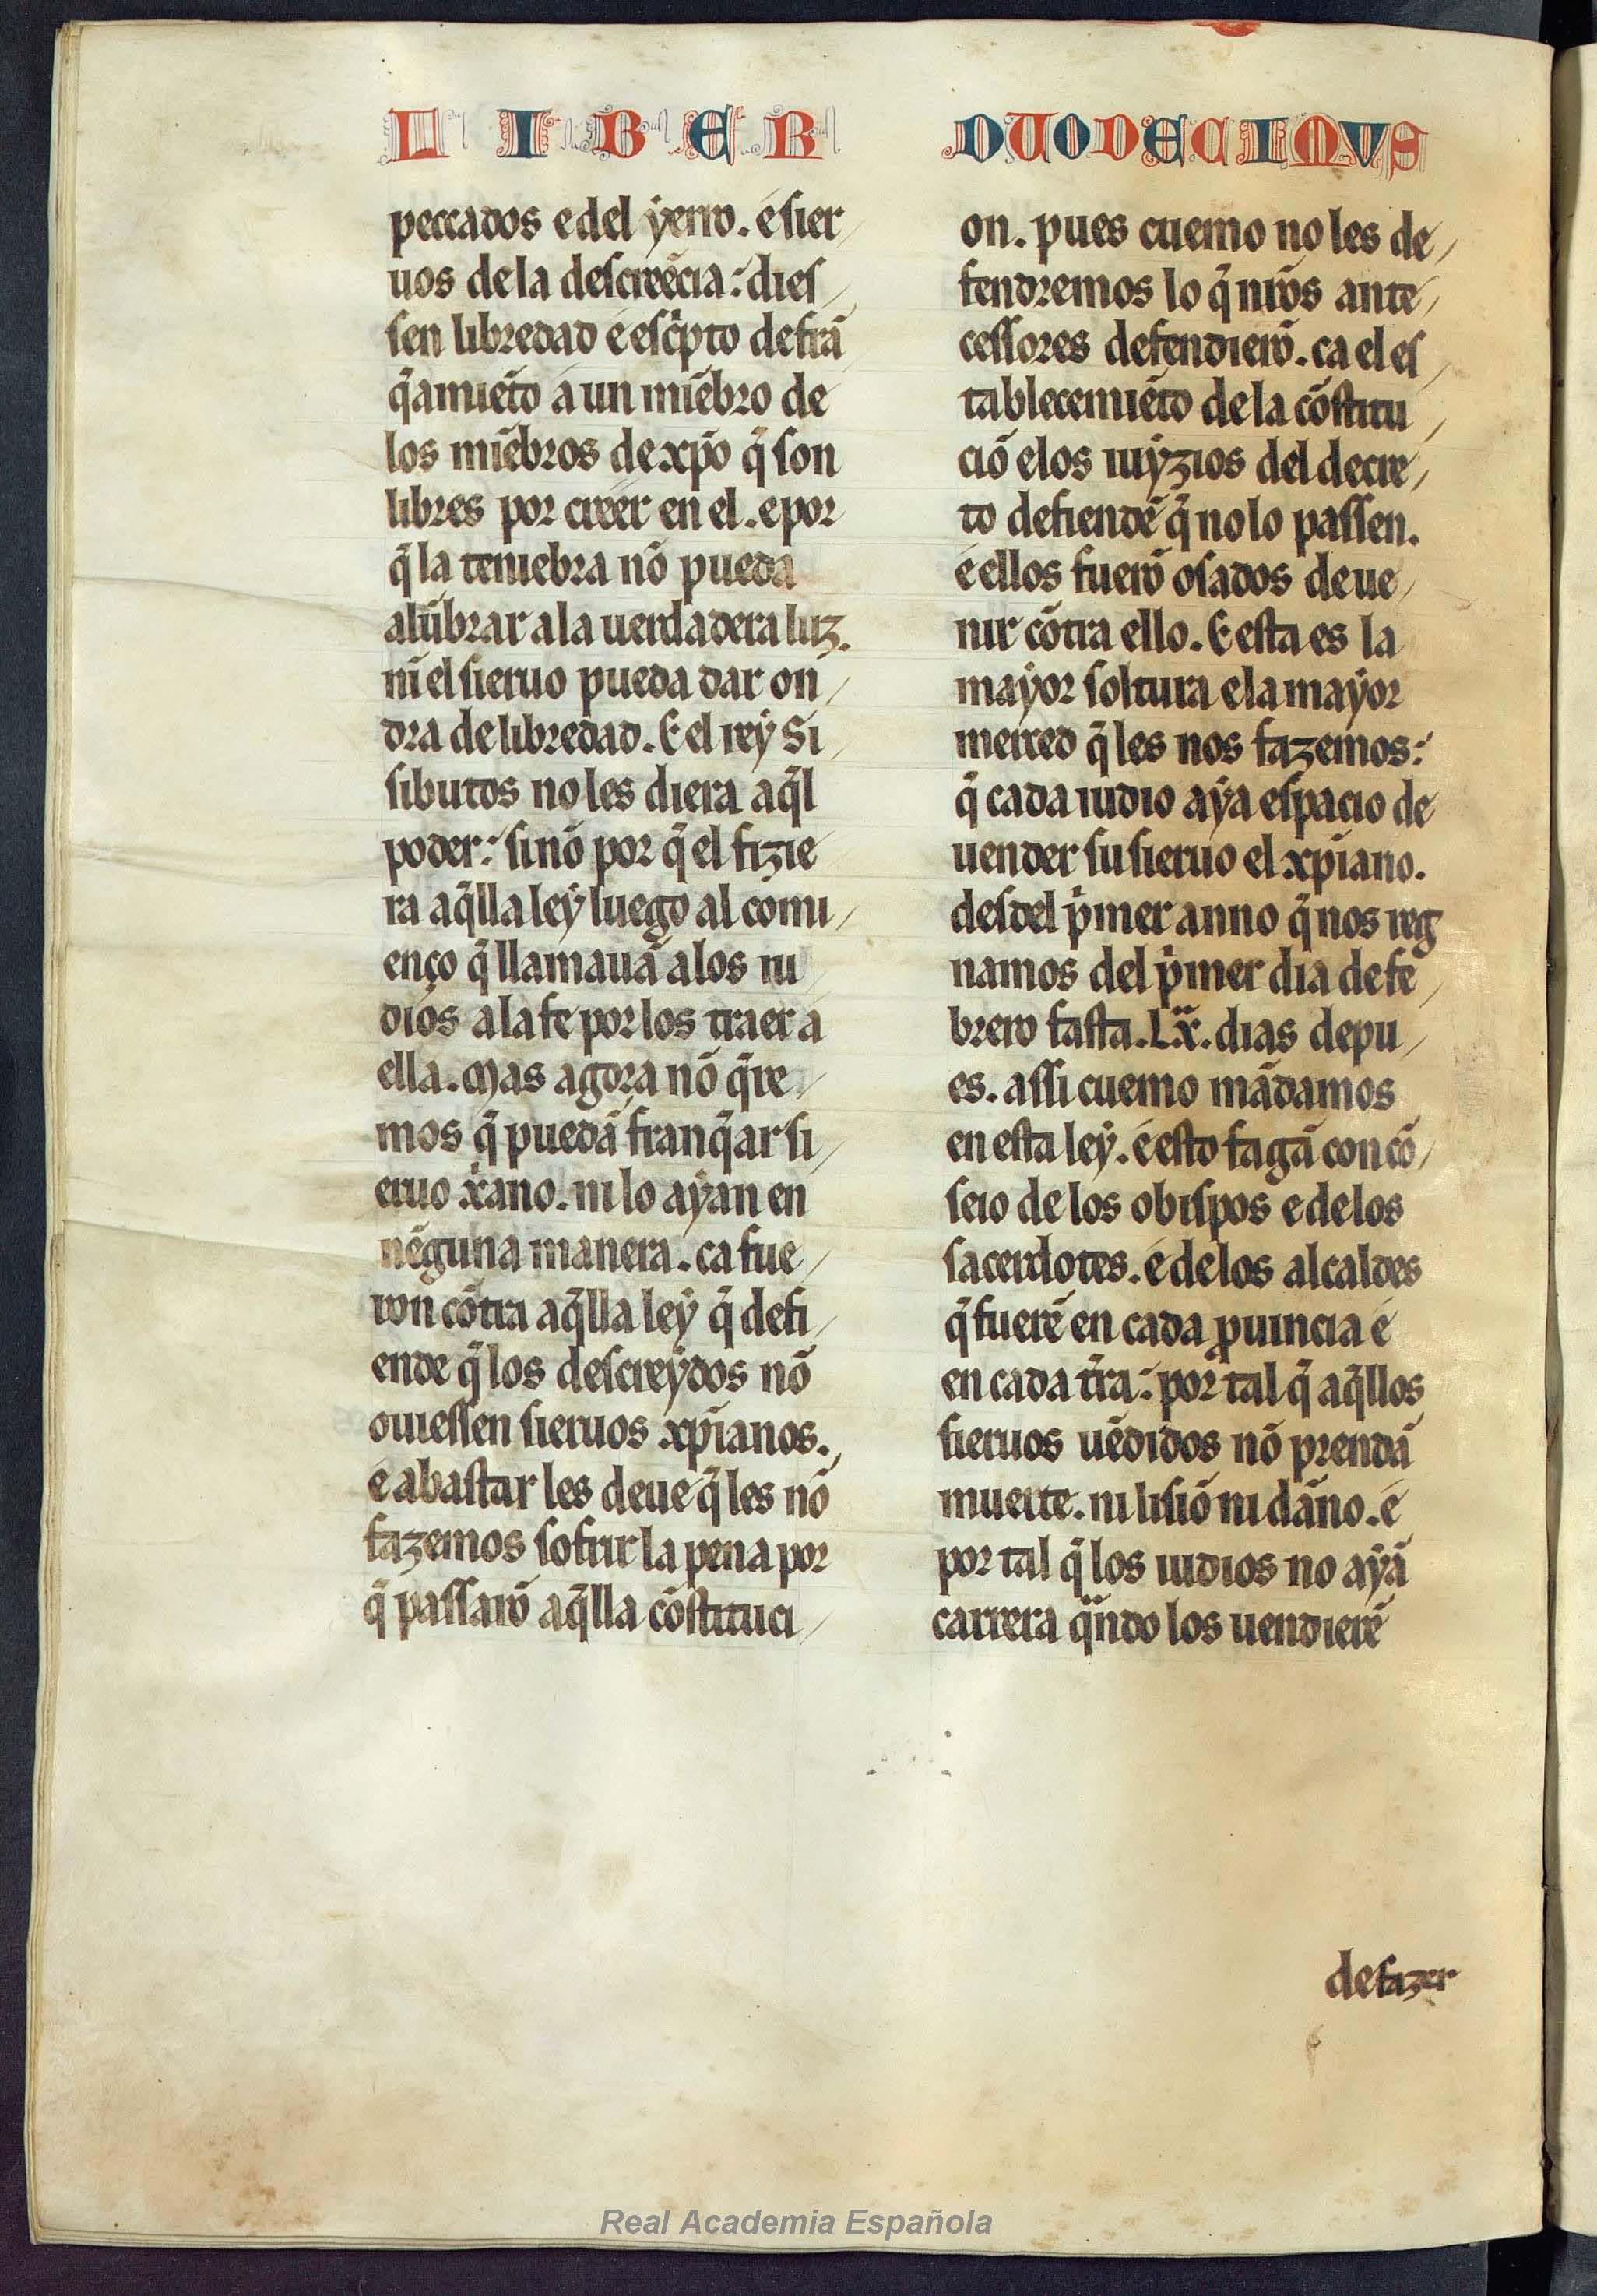 LIBER DUODECIMVS
peccados e del ẏerro. é ſier
uos de la deſcreécia: dieſ
ſen libredad é eſcͥpto de frã
q̃amieto a un miẽbro de
los miẽbros de xp̃o q̃ ſon
libres por créer en el. e por
q̃ la teniebra nõ pueda
alũbrar a la uerdadera luz.
ni el ſieruo pueda dar on
dra de libredad. E el reẏ Si
ſibutos no les diera aq̃l
poder: ſinõ por q̃ el fizie
ra aq̃lla leẏ luego al comi
enço q̃ llamauã a los iu
dios a la fe por los traer a
ella. Mas agora nõ q̃re
mos q̃ puedã franq̃ar ſi
eruo xͥano. ni lo aẏan en
nẽguna manera. ca fue
ron cõtra aq̃lla leẏ q̃ defi
ende q̃ los deſcreẏdos nõ
ouieſſen ſieruos xp̃ianos.
é abaſtar les deue q̃ les nõ
fazemos ſofrir la pena por
q̃ paſſarõ aq̃lla cõſtituci
on. pues cuemo no les de
fendremos lo q̃ nr̃os ante
ceſſores defendierõ. ca el eſ
tablecemiẽto de la cõſtitu
ciõ e los iuẏzios del decre
to defiendẽ q̃ no lo paſſen.
é ellos fuerõ oſados de ue
nir cõtra ello. E eſta es la
maẏor ſoltura e la maẏor
merced q̃ les nos fazemos:
q̃ cada iudio aẏa eſpacio de
uender ſu ſieruo el xp̃iano.
deſdel pͥmer anno q̃ nos reg
namos del pͥmer dia de fe
brero faſta .Lx̃. dias depu
es. aſſi cuemo mãdamos
en eſta leẏ. é eſto fagã con cõ
ſeio de los obiſpos e de los
ſacerdotes. é de los alcaldes
q̃ fuerẽ en cada ꝓuincia é
en cada tr̃a: por tal q̃ aq̃llos
ſieruos uẽdidos nõ prendã
muerte. ni liſiõ ni dãno. é
por tal q̃ los iudios no aẏã
carrera qͣndo los uendierẽ
de fazer
Real Academia Española